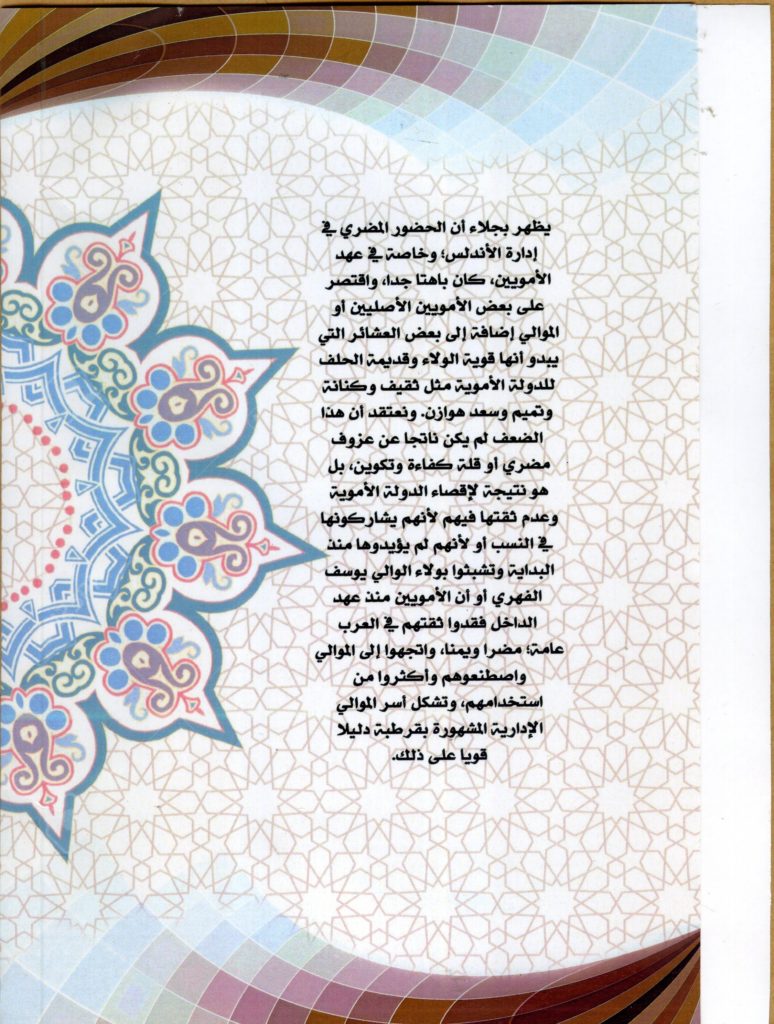 يظهر بجلاء أن الحضور المضري في
إدارة الأندلس؛ وخاصة في عهد
الأمويين، كان باهتا جدا، واقتصر
على بعض الأمويين الأصليين أو
الموالي إضافة إلى بعض العشائر التي
يبدو أنها قوية الولاء وقديمة الحلف
للدولة الأموية مثل ثقيف وكنانة
وتميم وسعد هوازن. ونعتقد أن هذا
الضعف لم يكن ناتجا عن عزوف
مضري أو قلة كفاءة وتكوين، بل
هو نتيجة لإقصاء الدولة الأموية
وعدم ثقتها فيهم لأنهم يشاركونها
في النسب أو لأنهم لم يؤيدوها منذ
البداية وتشبثوا بولاء الوالي يوسف
الفهري أو أن الأمويين منذ عهد
الداخل فقدوا ثقتهم في العرب
عامة؛ مضرا ويمنا، واتجهوا إلى الموالي
واصطنعوهم وأكثروا من
استخدامهم، وتشكل أسر الموالي
الإدارية المشهورة بقرطبة دليلا
قويا على ذلك.